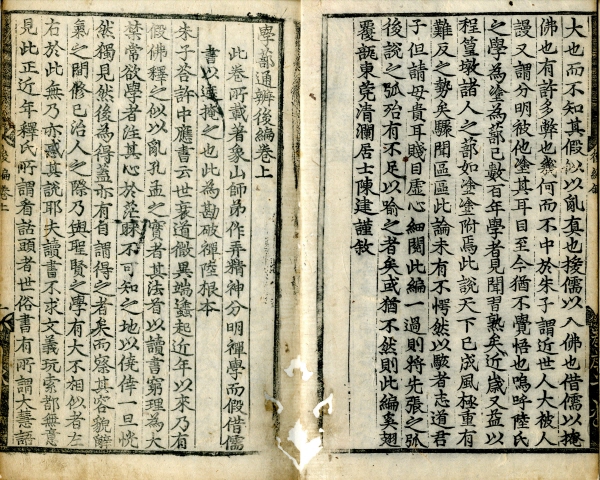 大也而不知其假似以亂真也援儒以入佛也借儒以掩
佛也有許多弊也幾何而不中於朱子謂近世人大被人
謾又謂分明被他塗其耳目至今猶不覺悟也嗚呼陸氏
之學為塗為蔀已數百年學者見聞習熟矣近歲又益以
程篁墩諸人之蔀如塗塗附焉此說天下已成風極重有
難反之勢矣驟聞區區此論未有不愕然以駭者志道君
子但請母貴耳賤目虛心細閱此編一過則將先張之弧
後說之弧殆有不足以喻之者矣或猶不然則此編奚翅
覆瓿東莞清瀾居士陳建謹敘
學蔀通辨後編卷上
此卷所載著象山師弟作弄精神分明禪學而假借儒
書以遮掩之也此為勘破禪陸根本
朱子答許中應書云世衰道微異端蠭起近年以來乃有
假佛釋之似以亂孔孟之實者其法首以讀書窮理為大
禁常欲學者注其心於茫昧不可知之地以僥倖一旦恍
然獨見然後為得蓋亦有自謂得之者矣而察其容貌辭
氣之間脩己治人之際乃與聖賢之學有大不相似者左
右於此無乃亦惑其說耶夫讀書不求文義玩索都無意
見此正近年釋氏所謂看話頭者世俗書有所謂大慧語
後編卷上